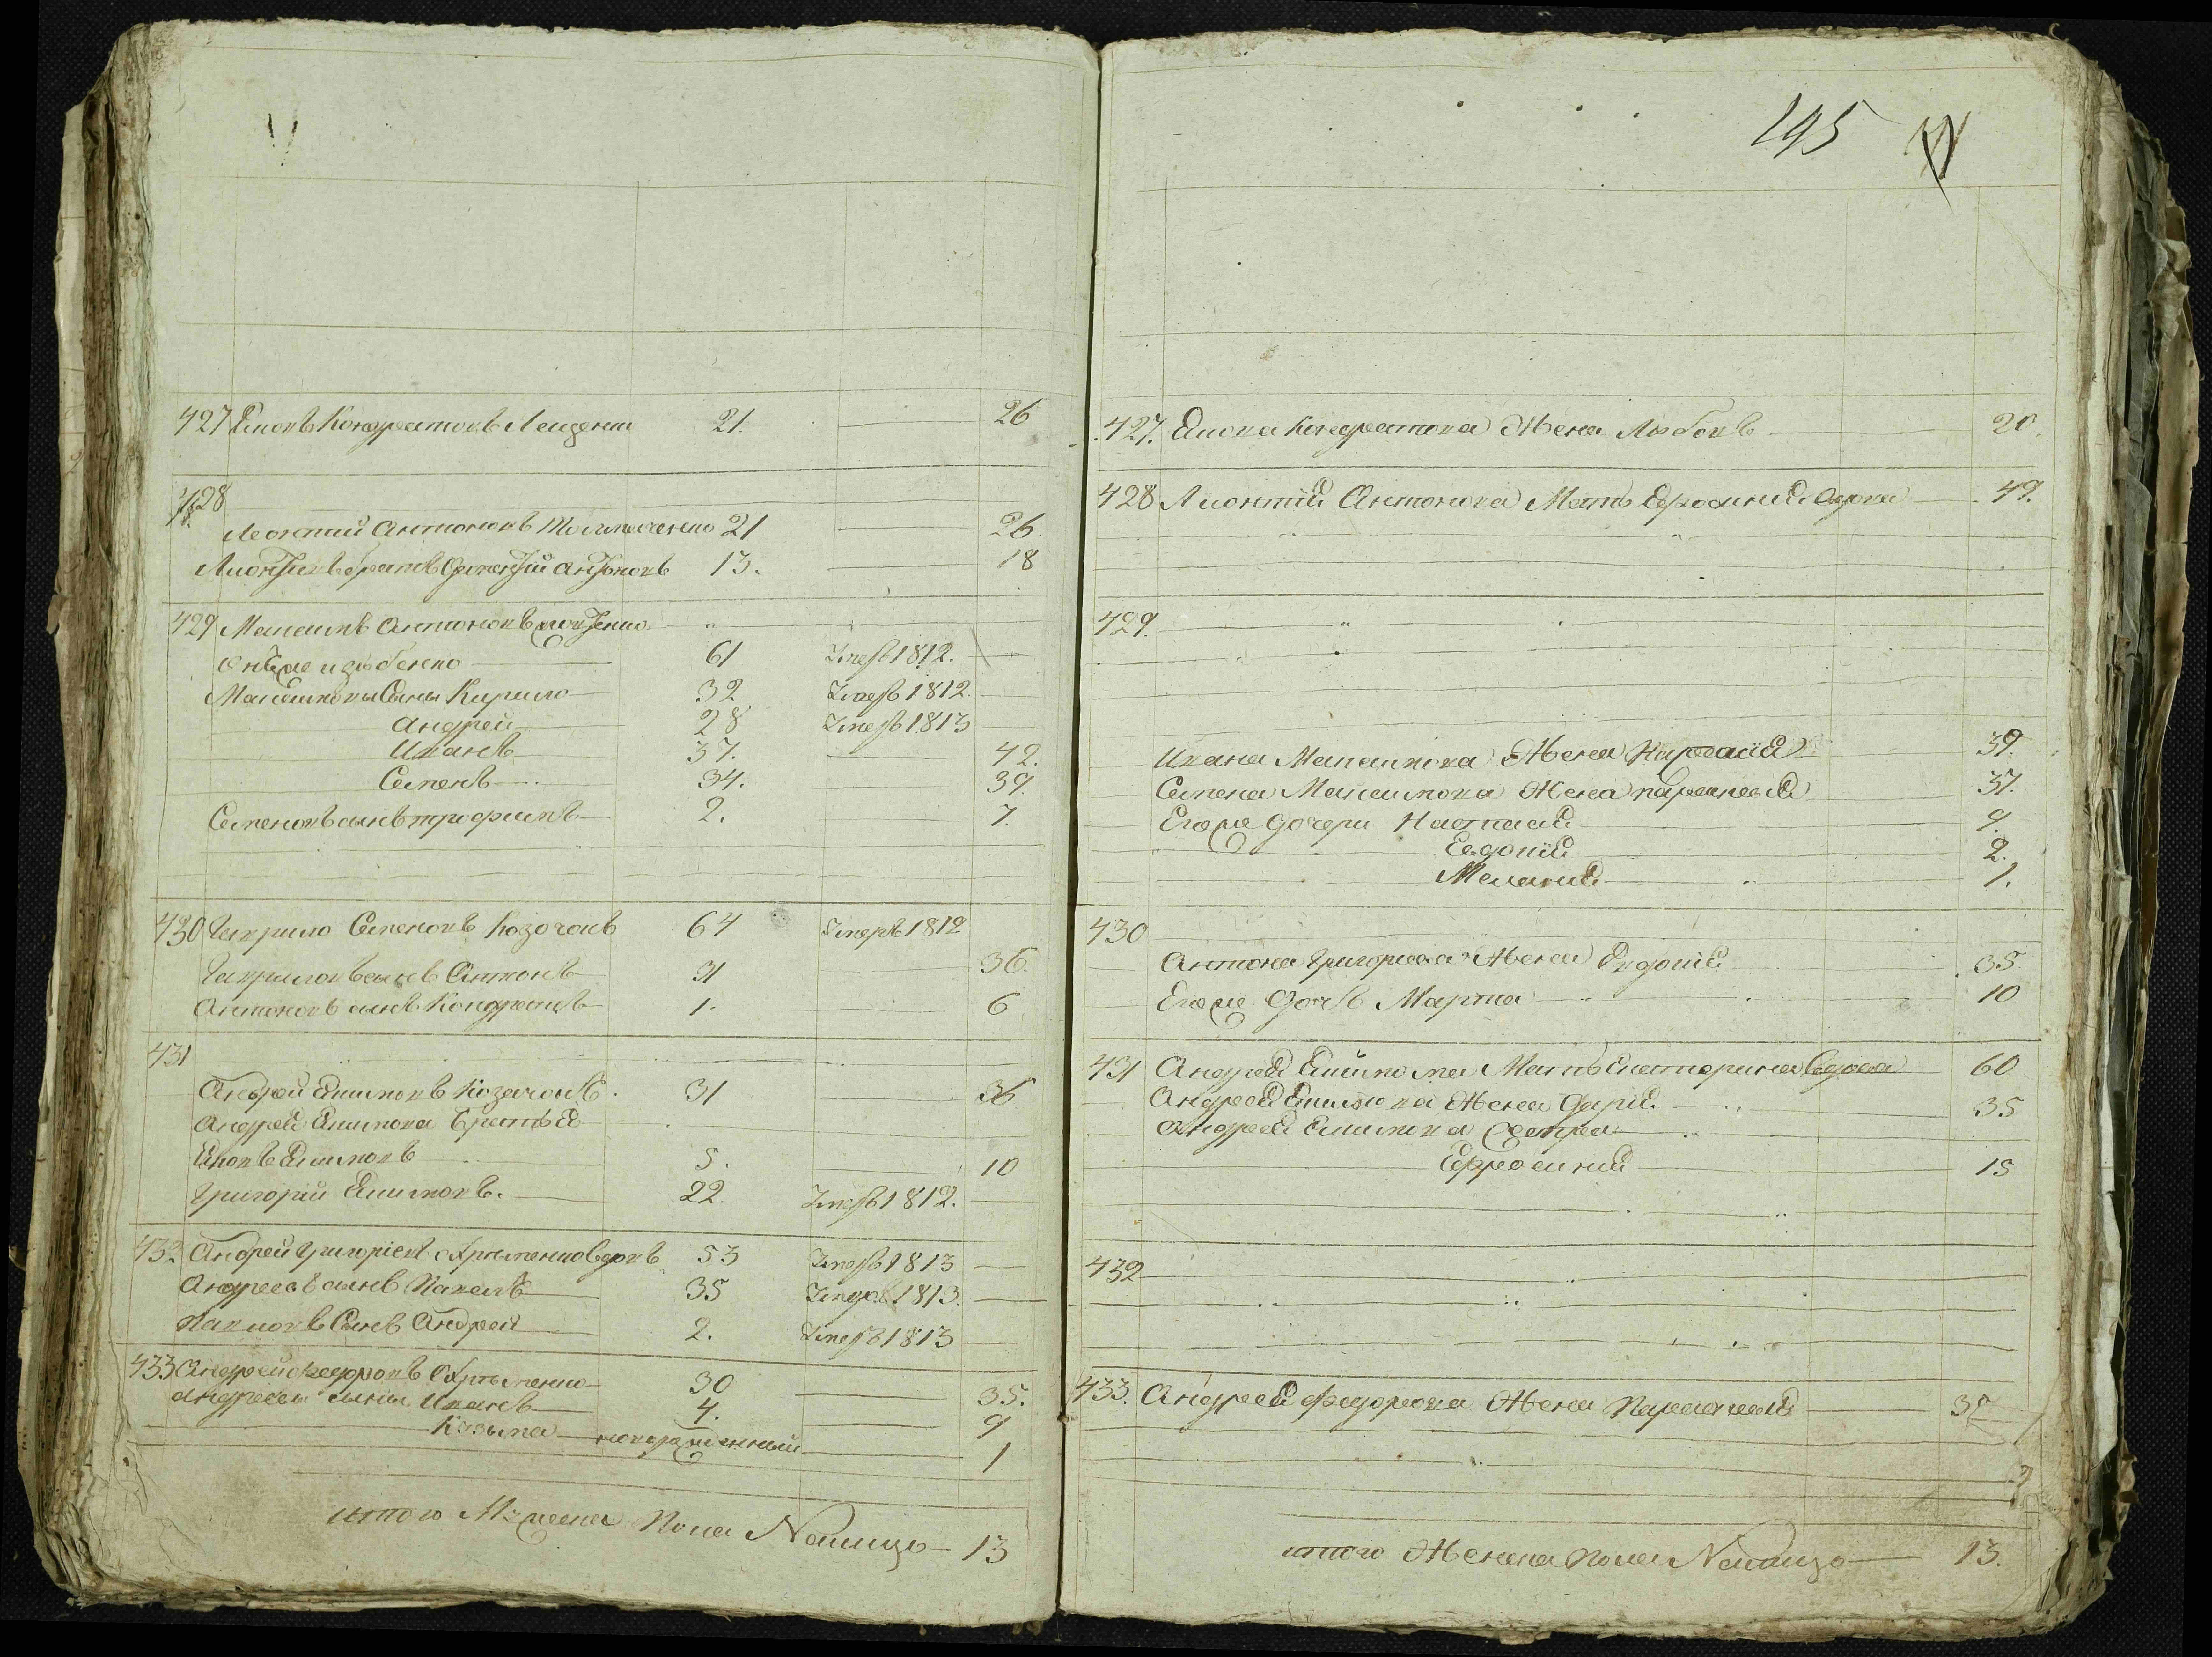 427 Яковъ Кондратовъ Лещенко 21. 26
428
Леонтий Антоновъ Толмаченко 21 26.
Лионтиевъ братъ Ѳрментий Антоновъ 13. 18
429 Максимъ Антоновъ
онъже изюбенко 61 Умеръ 1812.
Максимовы Сыны Кирило 32 Умеръ 1812.
Андрей 28 Умеръ 1813
Иванъ 37. 42.
Семенъ 34. 39.
Семеновъ сынъ трофимъ 2. 7.
430 Гаврило Семеновъ Козочокъ 64 Умеръ 1812
Гавриловъ сынъ Антонъ 31 36.
Антоновъ сынъ Кондратъ 1. 6
431
Андрей Екимовъ Козачокъ 31 36
Андрея Екимова братья
Яковъ Екимовъ 5. 10
Григорий Екимовъ. 22. Умеръ 1812.
432 Андрей Григорiевъ Охрименко вдовъ 53 Умеръ 1813
Андреевъ сынъ Павелъ 35 Умеръ 1813.
Павловъ Сынъ Андрей 2. Умеръ 1813
433 Андрей Федоровъ Охрименко 30 35.
Андреевы сыны Иванъ 4. 9
Козьма новорожденный 1
итого Мужеска Пола Налицо 13
195
427. Якова Кондратова Жена Любовь 20.
428 Лионтия Антонова Мать Ефросиния вдова 49.
429.
Ивана Максимова Жена 39.
Семена Максимова Жена параскевия 37.
Егоже дочери Настасия 9.
Евдокия 2.
Мелания 1.
430
Антона Григорьева Жена Евдокия 35.
Егоже Дочь Марфа 10
431 Андрея Екимова Мать Екатерина вдова 60
Андрея Екимова Жена Дария 35
Андрея Екимова Сестра
Ефросиния 15
432
433. Андрея Федорова Жена Параскевия
итого Женска Пола Налицо 13.